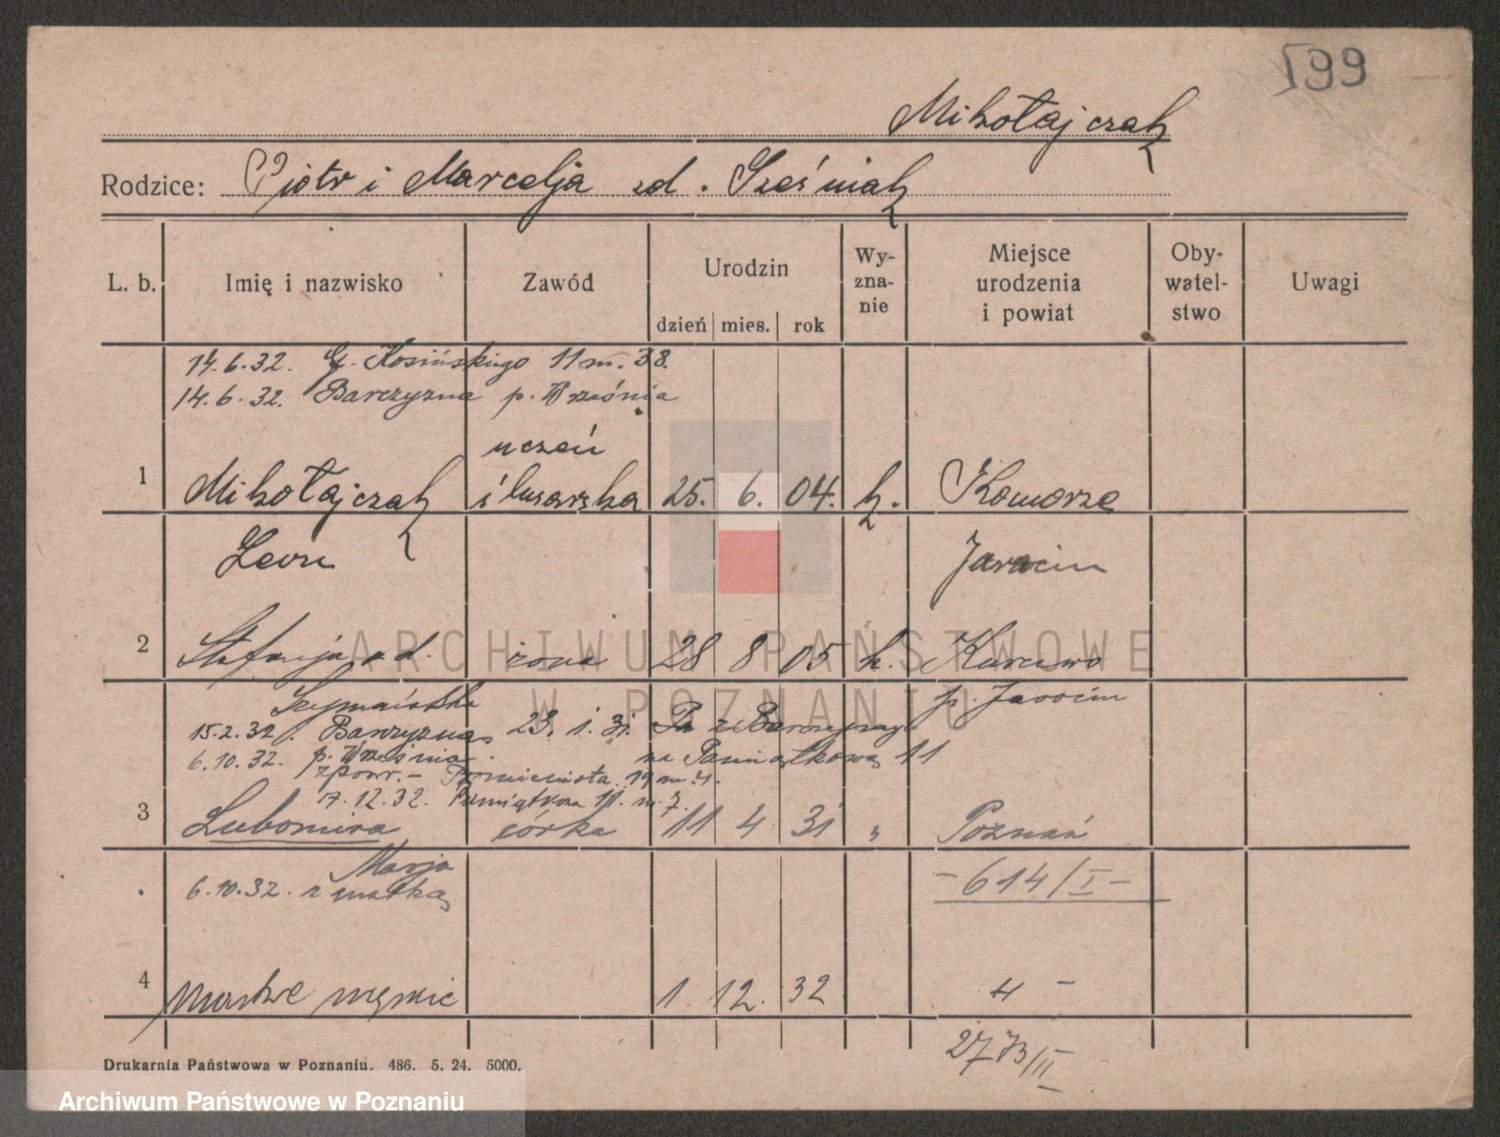 199
Mikołajczak
Rodzice: Piotr i Marcelja zd. Sześniak
L. b. Imię i nazwisko Zawód Urodzin dzień mies. rok Wy-zna-nie Miejsce urodzenia i powiat Oby-watel-stwo Uwagi
14.6.32. G. Kosińskiego 11 m. 38.
14.6.32. Barczyzna p. Września
uczeń
1 Mikołajczak ślusarska 25. 6. 04. k. Komorze
Leon Jarocin
2 Stefanja zd. żona 28 8 05 k.
Szymańska p. Jarocin
15.2.32. Barczyzna 23. 1. 31. Pa ze Barczyzny
6.10.32. p. Września na Pamiątkową 11
zpowr. - 19 m. 4.
17.12.32. Pamiątkowa 11. m. 7.
3 Lubomira córka 11 4 31 " Poznań
Marja - 614/I -
6.10.32. z matką
4 Martwe męskie 1. 12. 32 4 -
2773/II
Drukarnia Państwowa w Poznaniu. 486. 5. 24. 5000.
ARCHIWUM PAŃSTWOWE
W POZNANIU
Archiwum Państwowe w Poznaniu